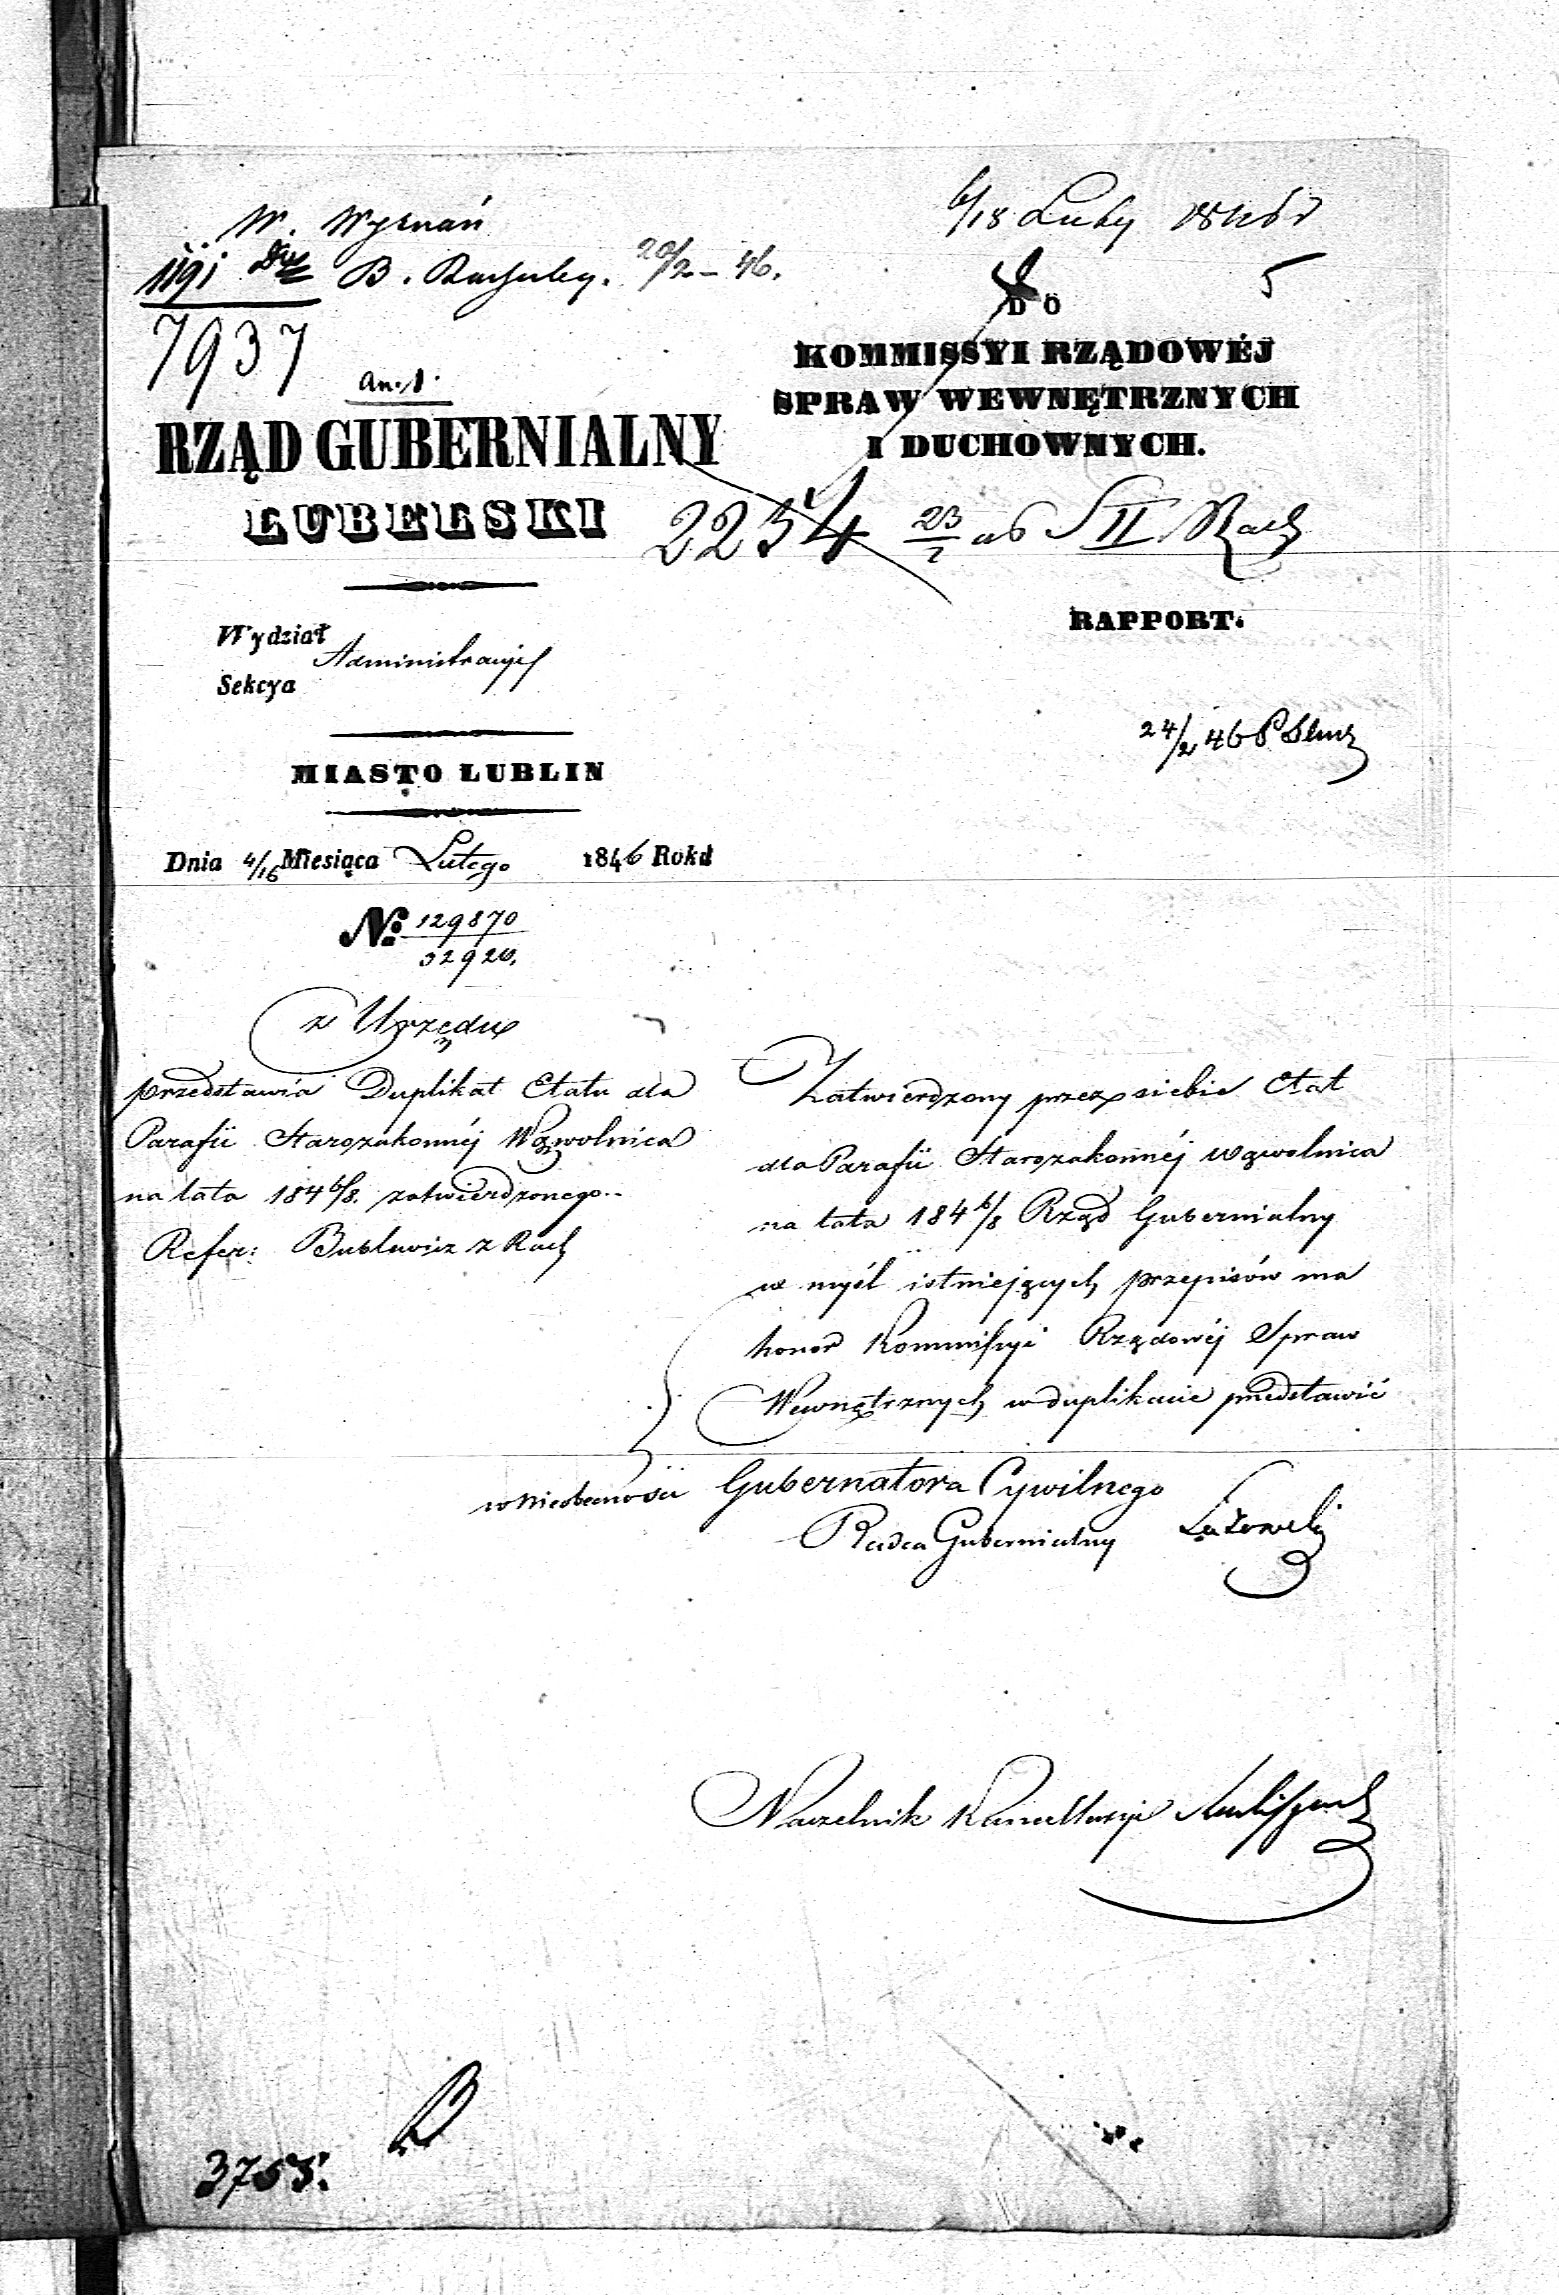 W. Wyznań
B. Rachuby. 20/2 – 46.
7937
An. 1.
RZĄD GUBERNIALNY
LUBELSKI
Wydział Administracyi
Sekcya
MIASTO LUBLIN
Dnia 4/16 Miesiąca Lutego 1846 Roku
No. 129870
32920.
z Urzędu
przedstawia Duplikat Etatu dla
Parafii Starozakonnéj Wąwolnica
na lata 1846/8. zatwierdzonego..
Refer: z Rach
6/18 Luty
5
DO
KOMMISSYI RZĄDOWÉJ
SPRAW WEWNĘTRZNYCH
I DUCHOWNYCH.
2254 23/2 46 S II Rach
RAPPORT.
24/2 46
Zatwierdzony przez siebie Etat
dla Parafii Starozakonnéj Wąwolnica
na lata 1846/8 Rząd Gubernialny
w myśl istniejących przepisów ma
honor Kommissyi Rządowéj Spraw
Wewnętrznych w duplikacie przedstawić
w nieobecności Gubernatora Cywilnego
Radca Gubernialny
Naczelnik Kancellaryi
3755.